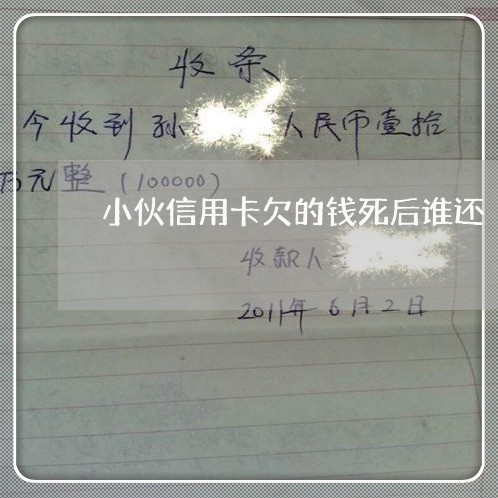 收条
今收到孙 人民币壹拾
万元整（100000）
小伙信用卡欠的钱死后谁还
收款人
2011年6月2日